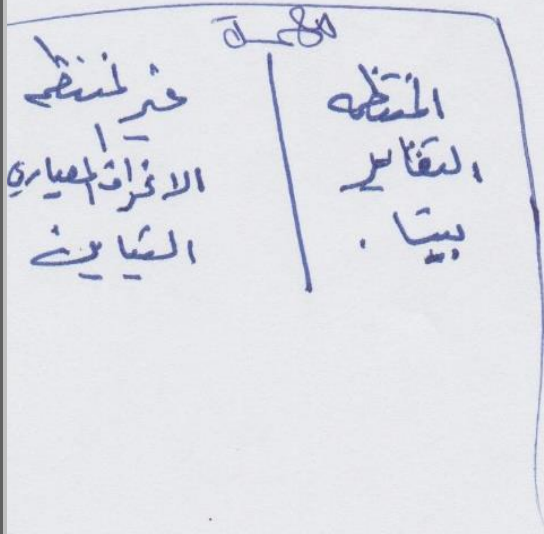 مهمة
المنتظمه
التغاير
بيتا.
غير المنتظمه
الانحراف المعياري
التباين